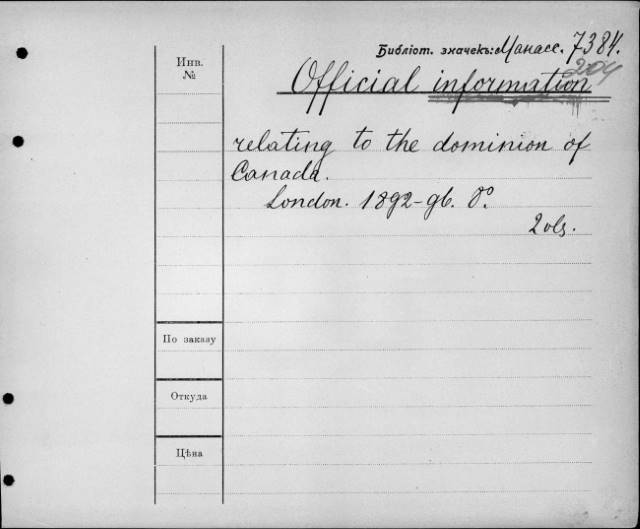 Библіот. значекъ: Манасс. 7384.
204
Инв.
№
Official information
relating to the dominion of
Canada.
London. 1892-96. 8°.
2 vls.
По заказу
Откуда
Цѣна